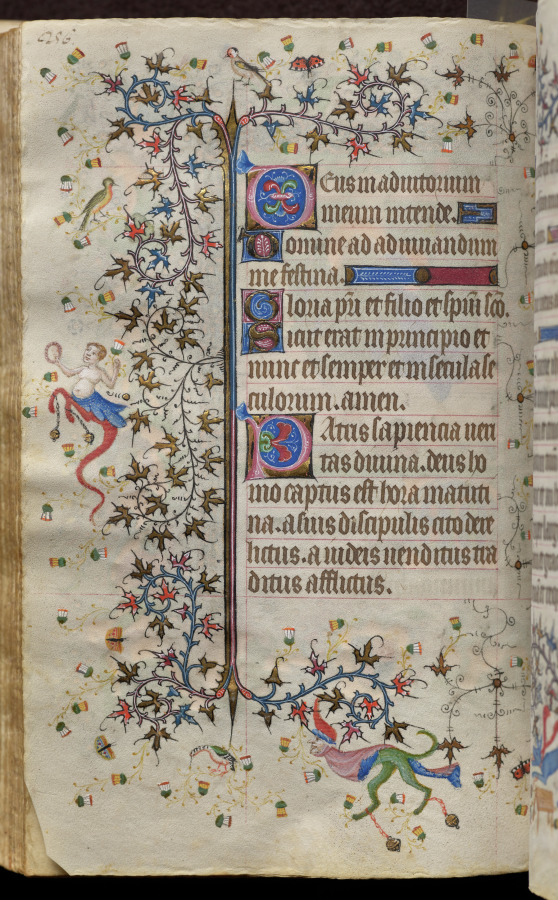 256
Deus in adiutorium
meum intende.
Domine ad adiuuandum
me festina
Gloria pri et filio et spiui sco.
Sicut erat in principio et
nunc et semper et in secula se
culorum. amen.
Patris sapiencia ueri
tas diuina. deus ho
mo captus est hora matuti
na. a suis discipulis cito dere
lictus. a iudeis uenditus tra
ditus afflictus.